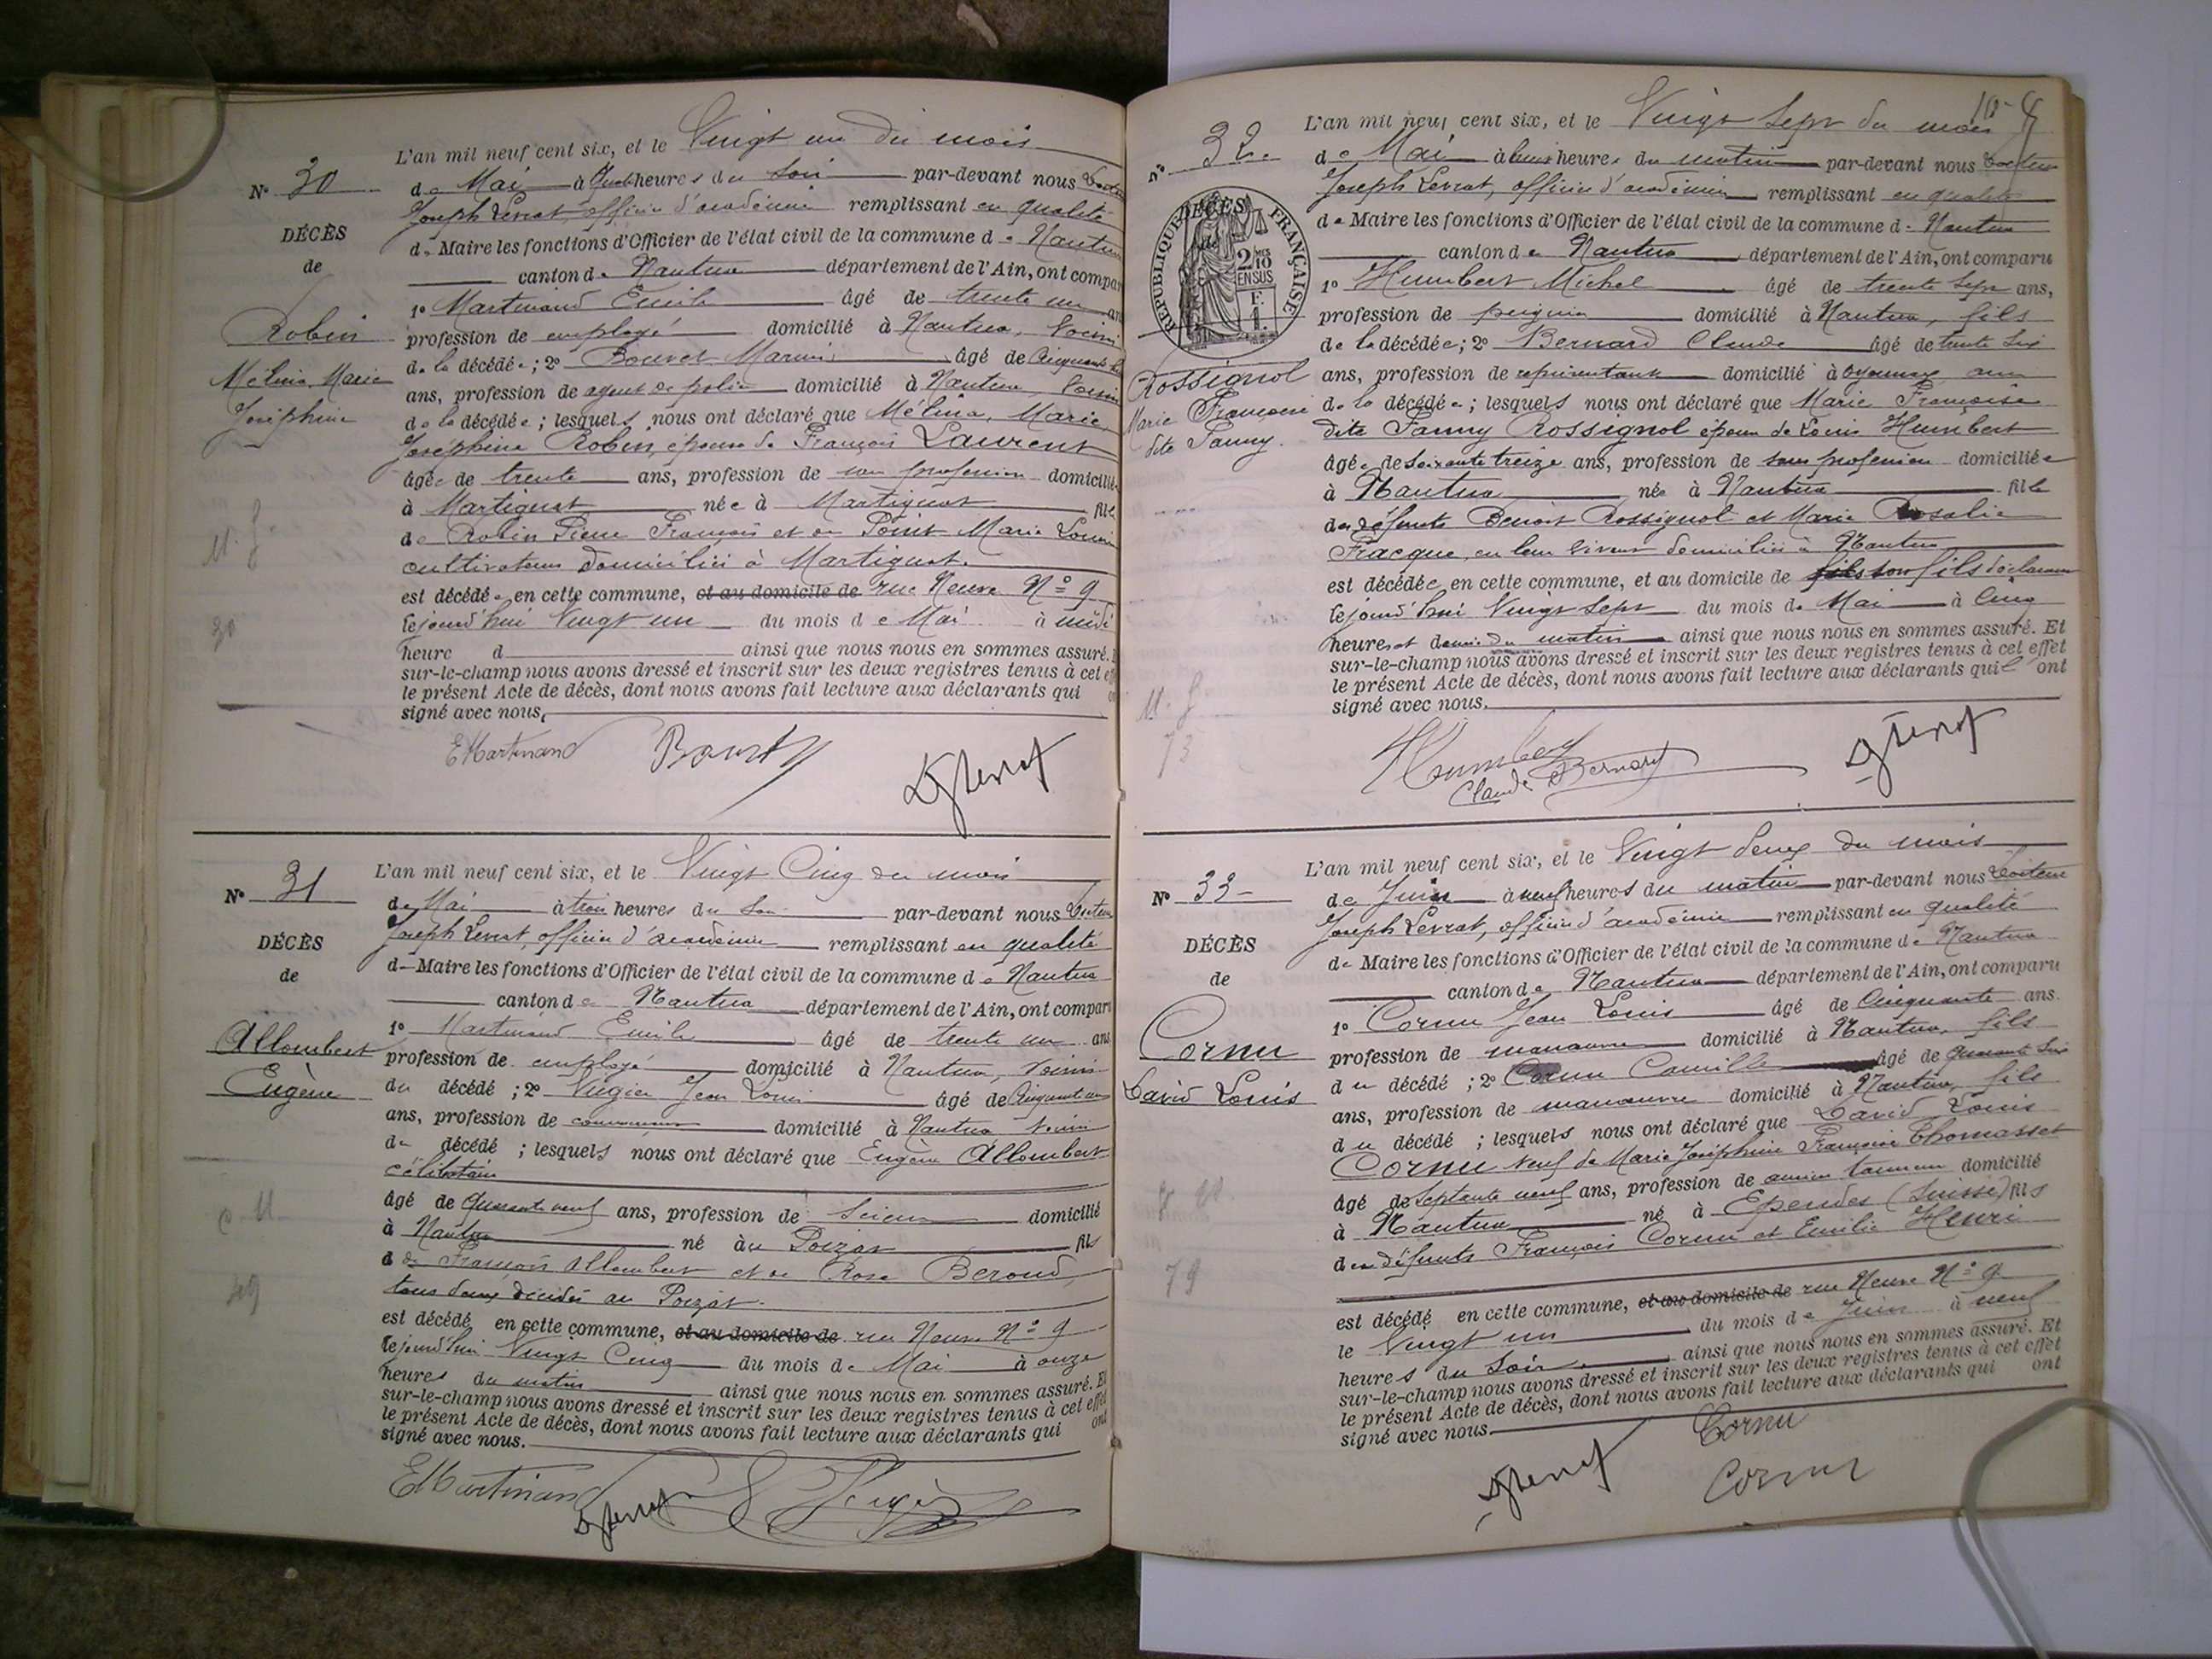 L'an mil neuf cent six, et le Vingt un du mois
N° 30
de Mai à quatre heures du soir par-devant nous Docteur
Joseph Levrat officier d'académie remplissant en qualité
DÉCÈS
de Maire les fonctions d'Officier de l'état civil de la commune de Nantua
de
canton de Nantua département de l'Ain, ont comparu
1° Martinand Emile âgé de trente un ans
Robin
profession de employé domicilié à Nantua, voisin
de la décédée; 2° Bouvet Marius âgé de Cinquante
Mélina Marie
ans, profession de agent de police domicilié à Nantua, voisin
Joséphine
de la décédée; lesquels nous ont déclaré que Mélina, Marie
Joséphine Robin, épouse de François Laurent
âgée de trente ans, profession de sans profession domiciliée
à Martignat née à Martignat fille
de Robin Pierre François et de Point Marie Louise
cultivateurs domiciliés à Martignat.
est décédée en cette commune, et au domicile de rue Neuve N° 9
30
le jourd'hui Vingt un du mois de Mai à midi
heure d ainsi que nous nous en sommes assuré. Et
sur-le-champ nous avons dressé et inscrit sur les deux registres tenus à cet effet
le présent Acte de décès, dont nous avons fait lecture aux déclarants qui ont
signé avec nous.
EMartinand
L'an mil neuf cent six, et le Vingt Cinq du mois
N° 31
de Mai à trois heures du soir par-devant nous Docteur
Joseph Levrat, officier d'académie remplissant en qualité
DÉCÈS
de Maire les fonctions d'Officier de l'état civil de la commune de Nantua
de
canton de Nantua département de l'Ain, ont comparu
1° Martinand Emile âgé de trente un ans
Allombert
profession de employé domicilié à Nantua, voisin
Eugène
du décédé; 2° Vugier Jean Louis âgé de Cinquante un
ans, profession de domicilié à Nantua voisin
du décédé; lesquels nous ont déclaré que Eugène Allombert
célibataire
âgé de Quarante neuf ans, profession de Scieur domicilié
à Nantua né au Poizat fils
de François Allombert et de Rose Beroud,
tous deux décédés au Poizat.
49
est décédé en cette commune, et au domicile de rue Neuve N° 9
le jourd'hui Vingt Cinq du mois de Mai à onze
heures du matin ainsi que nous nous en sommes assuré. Et
sur-le-champ nous avons dressé et inscrit sur les deux registres tenus à cet effet
le présent Acte de décès, dont nous avons fait lecture aux déclarants qui ont
signé avec nous.
EMartinand
L'an mil neuf cent six, et le Vingt Sept du mois
N° 32
de Mai à heures du matin par-devant nous Docteur
Joseph Levrat, officier d'académie remplissant en qualité
RÉPUBLIQUE FRANÇAISE
DÉCÈS
2/10 EN SUS
F. 1.
de Maire les fonctions d'Officier de l'état civil de la commune de Nantua
canton de Nantua département de l'Ain, ont comparu
1° Humbert Michel âgé de trente sept ans,
profession de domicilié à Nantua, fils
de la décédée; 2° Bernard Claude âgé de trente six
Rossignol
ans, profession de représentant domicilié à Oyonnax, ami
Marie Françoise
de la décédée; lesquels nous ont déclaré que Marie Françoise
dite Fanny.
dite Fanny Rossignol épouse de Louis Humbert
âgée de soixante treize ans, profession de sans profession domiciliée
à Nantua née à Nantua fille
des défunts Benoit Rossignol et Marie Rosalie
Fracque, en leur vivant domiciliés à Nantua
est décédée en cette commune, et au domicile de son fils déclarant
le jourd'hui Vingt Sept du mois de Mai à Cinq
heures et demie du matin ainsi que nous nous en sommes assuré. Et
sur-le-champ nous avons dressé et inscrit sur les deux registres tenus à cet effet
le présent Acte de décès, dont nous avons fait lecture aux déclarants qui ont
73
signé avec nous.
Humbert
Claude Bernard
L'an mil neuf cent six, et le Vingt deux du mois
N° 33
de Juin à neuf heures du matin par-devant nous Docteur
Joseph Levrat, officier d'académie remplissant en qualité
DÉCÈS
de Maire les fonctions d'Officier de l'état civil de la commune de Nantua
de
canton de Nantua département de l'Ain, ont comparu
1° Cornu Jean Louis âgé de Cinquante ans.
Cornu
profession de manœuvre domicilié à Nantua, fils
David Louis
du décédé; 2° Cornu Camille âgé de Quarante six
ans, profession de manœuvre domicilié à Nantua, fils
du décédé; lesquels nous ont déclaré que David Louis
Cornu veuf de Marie Joséphine Françoise Thomasset
âgé de Septante neuf ans, profession de ancien tanneur domicilié
à Nantua né à Ependes (Suisse) fils
79
des défunts François Cornu et Emilie Henri
est décédé en cette commune, et au domicile de rue Neuve N° 9
le Vingt un du mois de Juin à neuf
heures du Soir ainsi que nous nous en sommes assuré. Et
sur-le-champ nous avons dressé et inscrit sur les deux registres tenus à cet effet
le présent Acte de décès, dont nous avons fait lecture aux déclarants qui ont
signé avec nous.
Cornu
Cornu